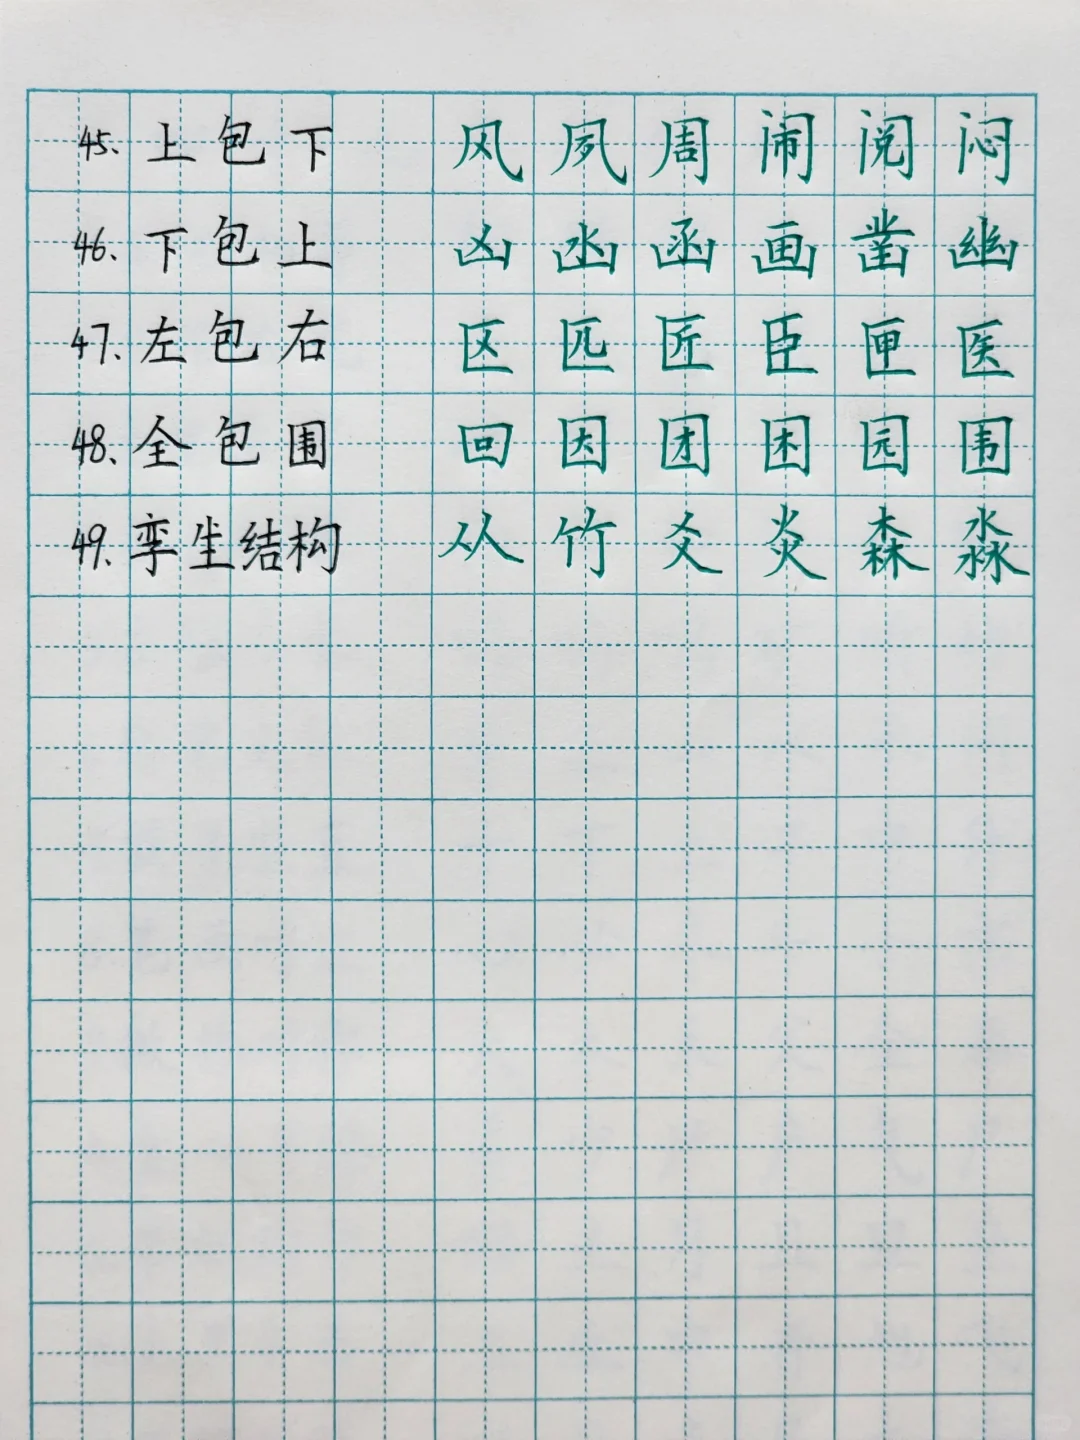 45、上包下 风 夙 周 闹 阅 闷
46、下包上 凶 凼 函 画 凿 幽
47、左包右 区 匹 匠 臣 匣 医
48、全包围 回 因 团 困 园 围
49、孪生结构 从 竹 爻 炎 森 淼